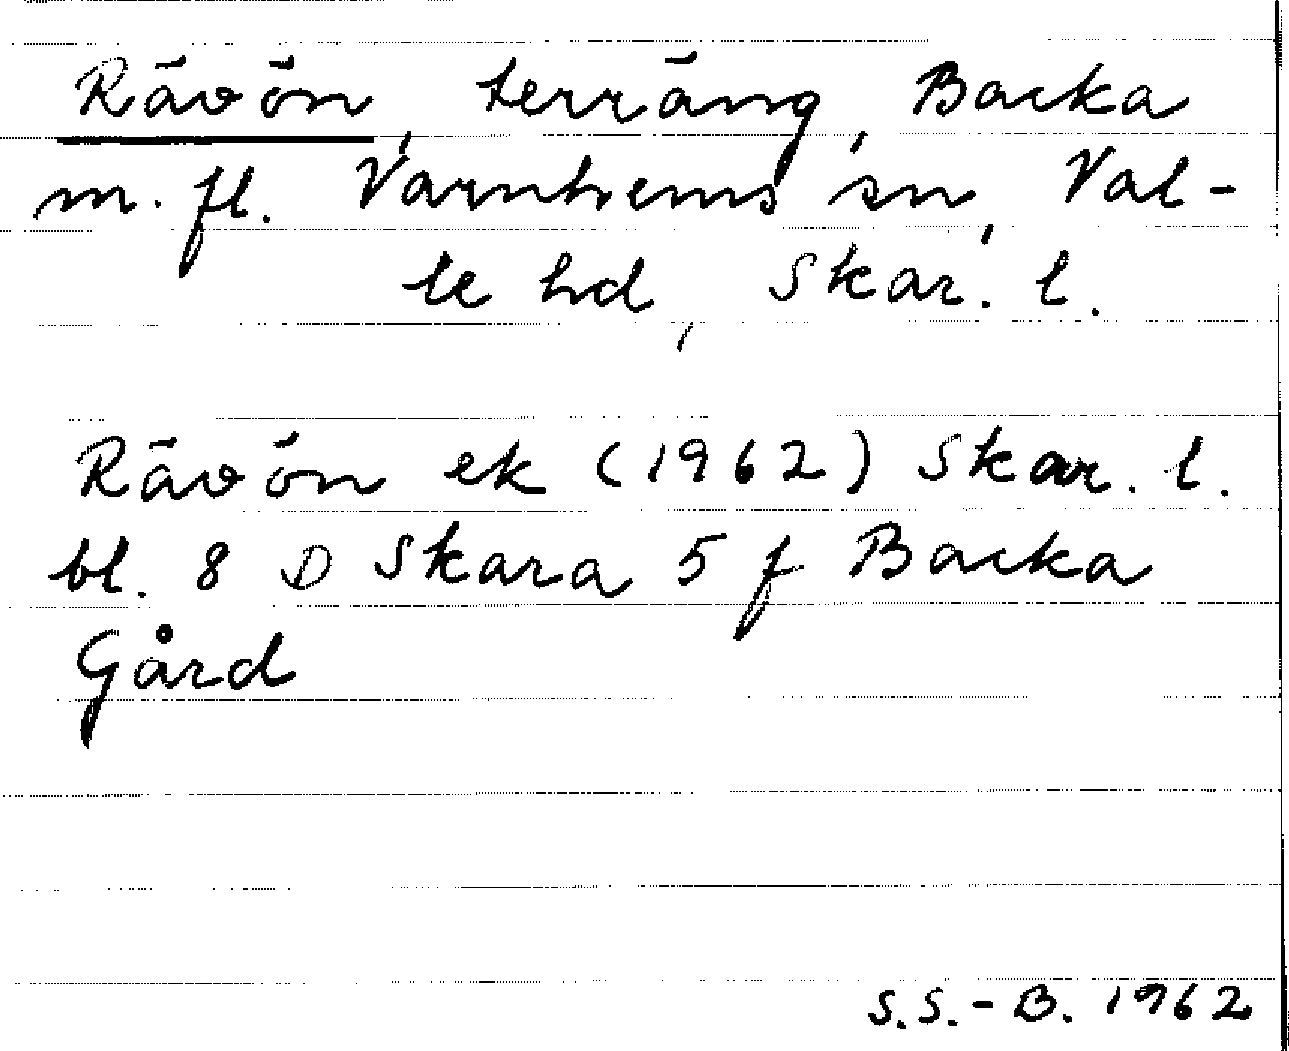 Rävön, terräng, Backa
m. fl. Varnhems sn, Val-
le hd, Skar. l.
Rävön ek (1962) Skar. l.
bl. 8 D Skara 5 f Backa
Gård
S.S.-B. 1962